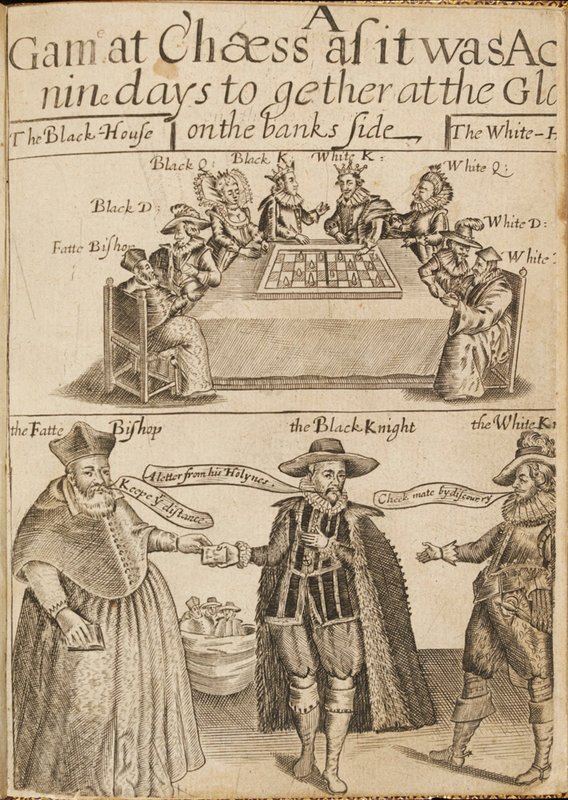 A
Game at Chæss as it was Ac
nine days to gether at the Glo
The Black-House
on the banks side
The White-H
Black Q:
Black K
White K:
White Q:
Black D:
White D:
Fatte Bishop
White
the Fatte Bishop
the Black Knight
the White Kn
A letter from his Holynes.
Keepe yͤ distance
Check mate by discovery